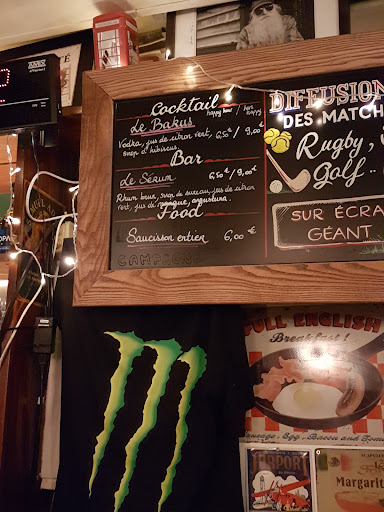 Cocktail
happy hour / hors happy
Le Bakus
Vodka, jus de citron vert, 6,50€ / 9,00€
sirop d'hibiscus.
Bar
Le Sérum 6,50€ / 9,00€
Rhum brun, sirop de sureau, jus de citron
vert, jus de mangue, angustura.
Food
Saucisson entier 6,00 €
DIFFUSION
DES MATCH
Rugby,
Golf..
SUR ÉCRA
GÉANT
FULL ENGLISH
Breakfast!
Sausage - Egg, Bacon and Tom
Margarit